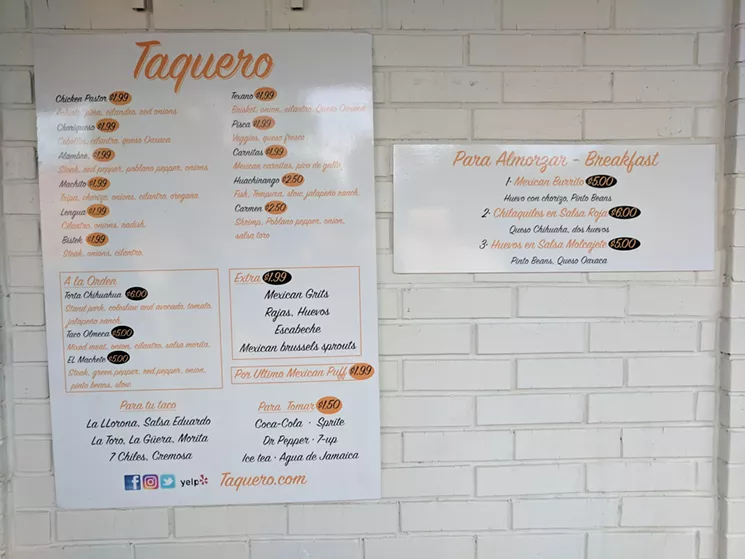 Taquero
Chicken Pastor $1.99
pina, cilantro, red onions
Choriqueso $1.99
Cebollin, cilantro, queso Oaxaca
Alambre $1.99
Steak, red pepper, poblano pepper, onions
Machito $1.99
Tripa, chorizo, onions, cilantro, oregano
Lengua $1.99
Cilantro, onions, radish.
Bistek $1.99
Steak, onions, cilantro.
Texano $1.99
Brisket, onion, cilantro, Queso Oaxaca
Pisca $1.99
Veggies, queso fresco
Carnitas $1.99
Mexican carnitas, pico de gallo
Huachinango $2.50
Fish, Tempura, slow, jalapeño ranch.
Carmen $2.50
Shrimp, Poblano pepper, onion,
salsa toro
A la Orden
Torta Chihuahua $6.00
pork, coleslaw and avocado, tomato,
jalapeño ranch.
Taco Olmeca $5.00
Mixed meat, onion, cilantro, salsa morita.
EL Machete $5.00
Steak, green pepper, red pepper, onion,
pinto beans, slow.
Extra $1.99
Mexican Grits
Rajas, Huevos
Escabeche
Mexican brussels sprouts
Por Ultimo Mexican Puff $1.99
Para tu taco
La LLorona, Salsa Eduardo
La Toro, La Güera, Morita
7 Chiles, Cremosa
Para Tomar $1.50
Coca-Cola · Sprite
Dr Pepper · 7-up
Ice tea · Agua de Jamaica
yelp Taquero.com
Para Almorzar - Breakfast
1- Mexican Burrito $5.00
Huevo con chorizo, Pinto Beans
2- Chilaquiles en Salsa Roja $6.00
Queso Chihuaha, dos huevos
3- Huevos en Salsa Molcajete $5.00
Pinto Beans, Queso Oaxaca